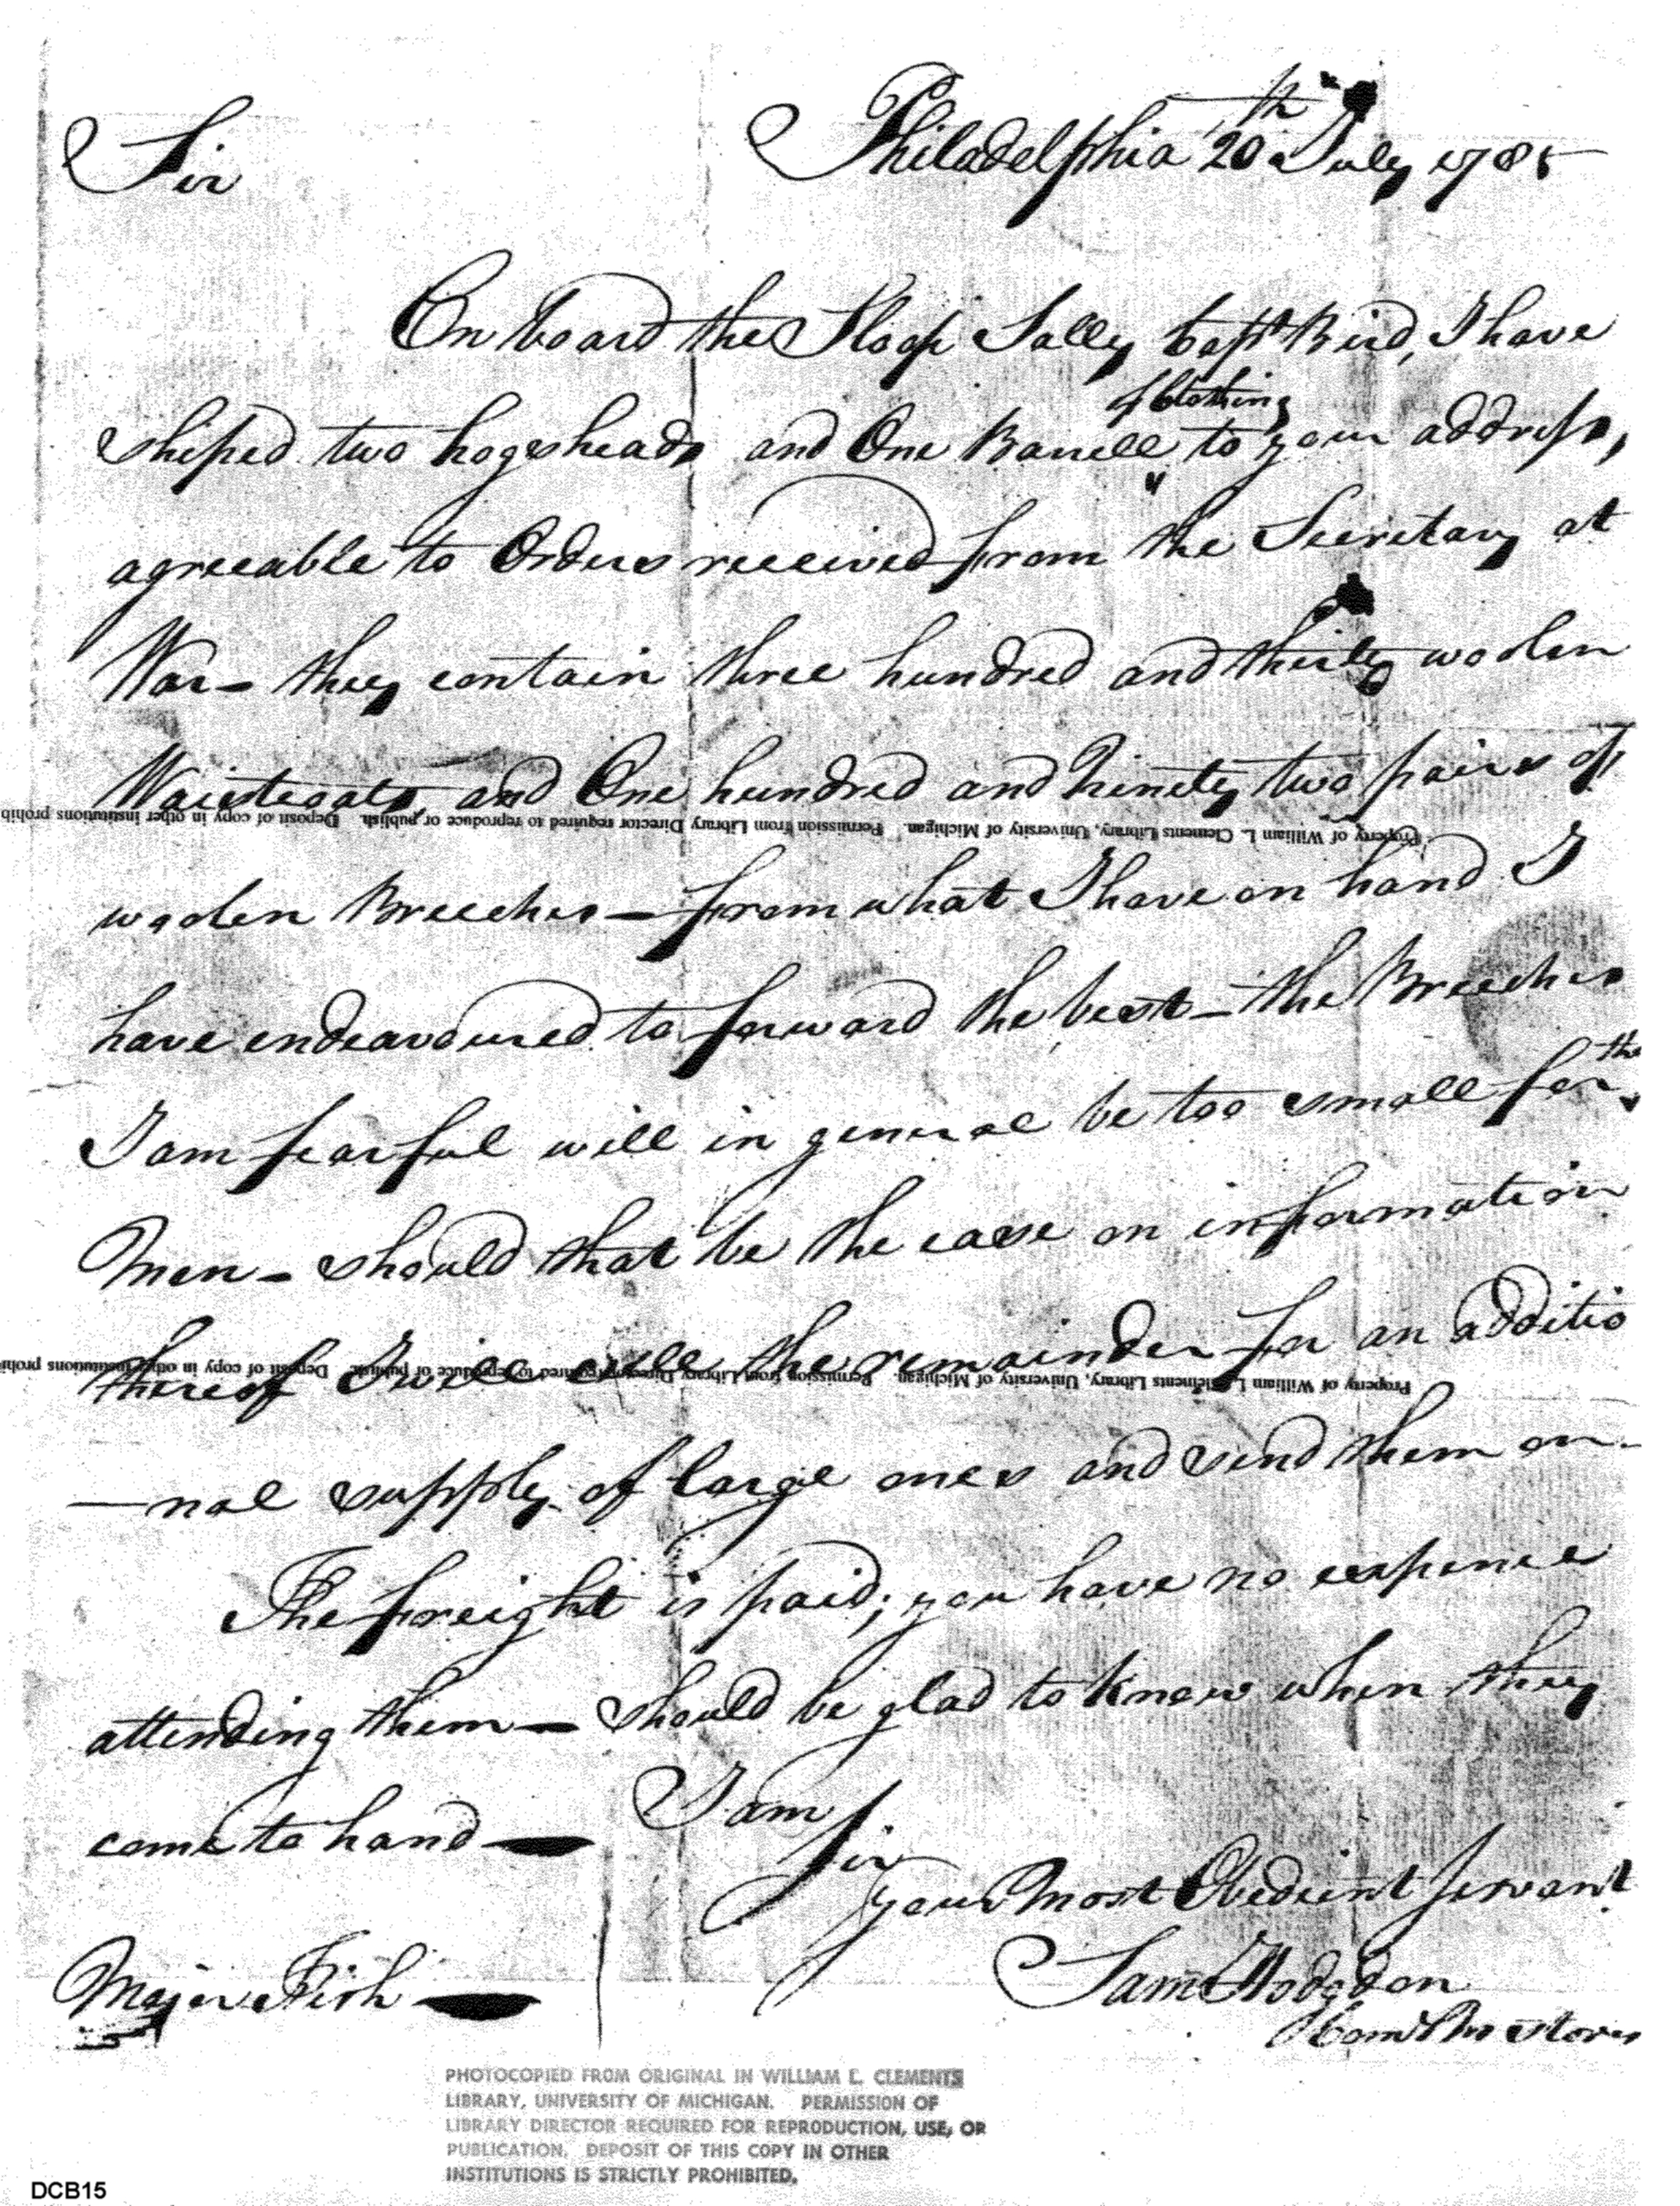 Sir
Philadelphia 20th July 1785
On board the Sloop Sally Capt Bird, I have
of Clothing
shiped two hogsheads and One Barrell to your address,
agreeable to Orders received from the Secretary at
War – they contain three hundred and thirty woolen
Waistcoats, and One hundred and Ninety two pairs of
Property of William L. Clements Library, University of Michigan. Permission from Library Director required to reproduce or publish. Deposit of copy in other institutions prohib
woolen Breeches – from what I have on hand I
have endeavoured to forward the best – the Breeches
I am fearful will in general be too small for the
Men – should that be the case on information
thereof I will cull the remainder for an additio
Property of William L. Clements Library, University of Michigan. Permission from Library Director required to reproduce or publish. Deposit of copy in other institutions prohi
–nal supply of large ones and send them on –
The freight is paid; you have no expence
attending them – should be glad to know when they
come to hand –
I am
Sir
your Most Obedient servant
Saml Hodgdon
Com Stores
Major Fish
PHOTOCOPIED FROM ORIGINAL IN WILLIAM L. CLEMENTS
LIBRARY, UNIVERSITY OF MICHIGAN. PERMISSION OF
LIBRARY DIRECTOR REQUIRED FOR REPRODUCTION, USE, OR
PUBLICATION. DEPOSIT OF THIS COPY IN OTHER
INSTITUTIONS IS STRICTLY PROHIBITED.
DCB15